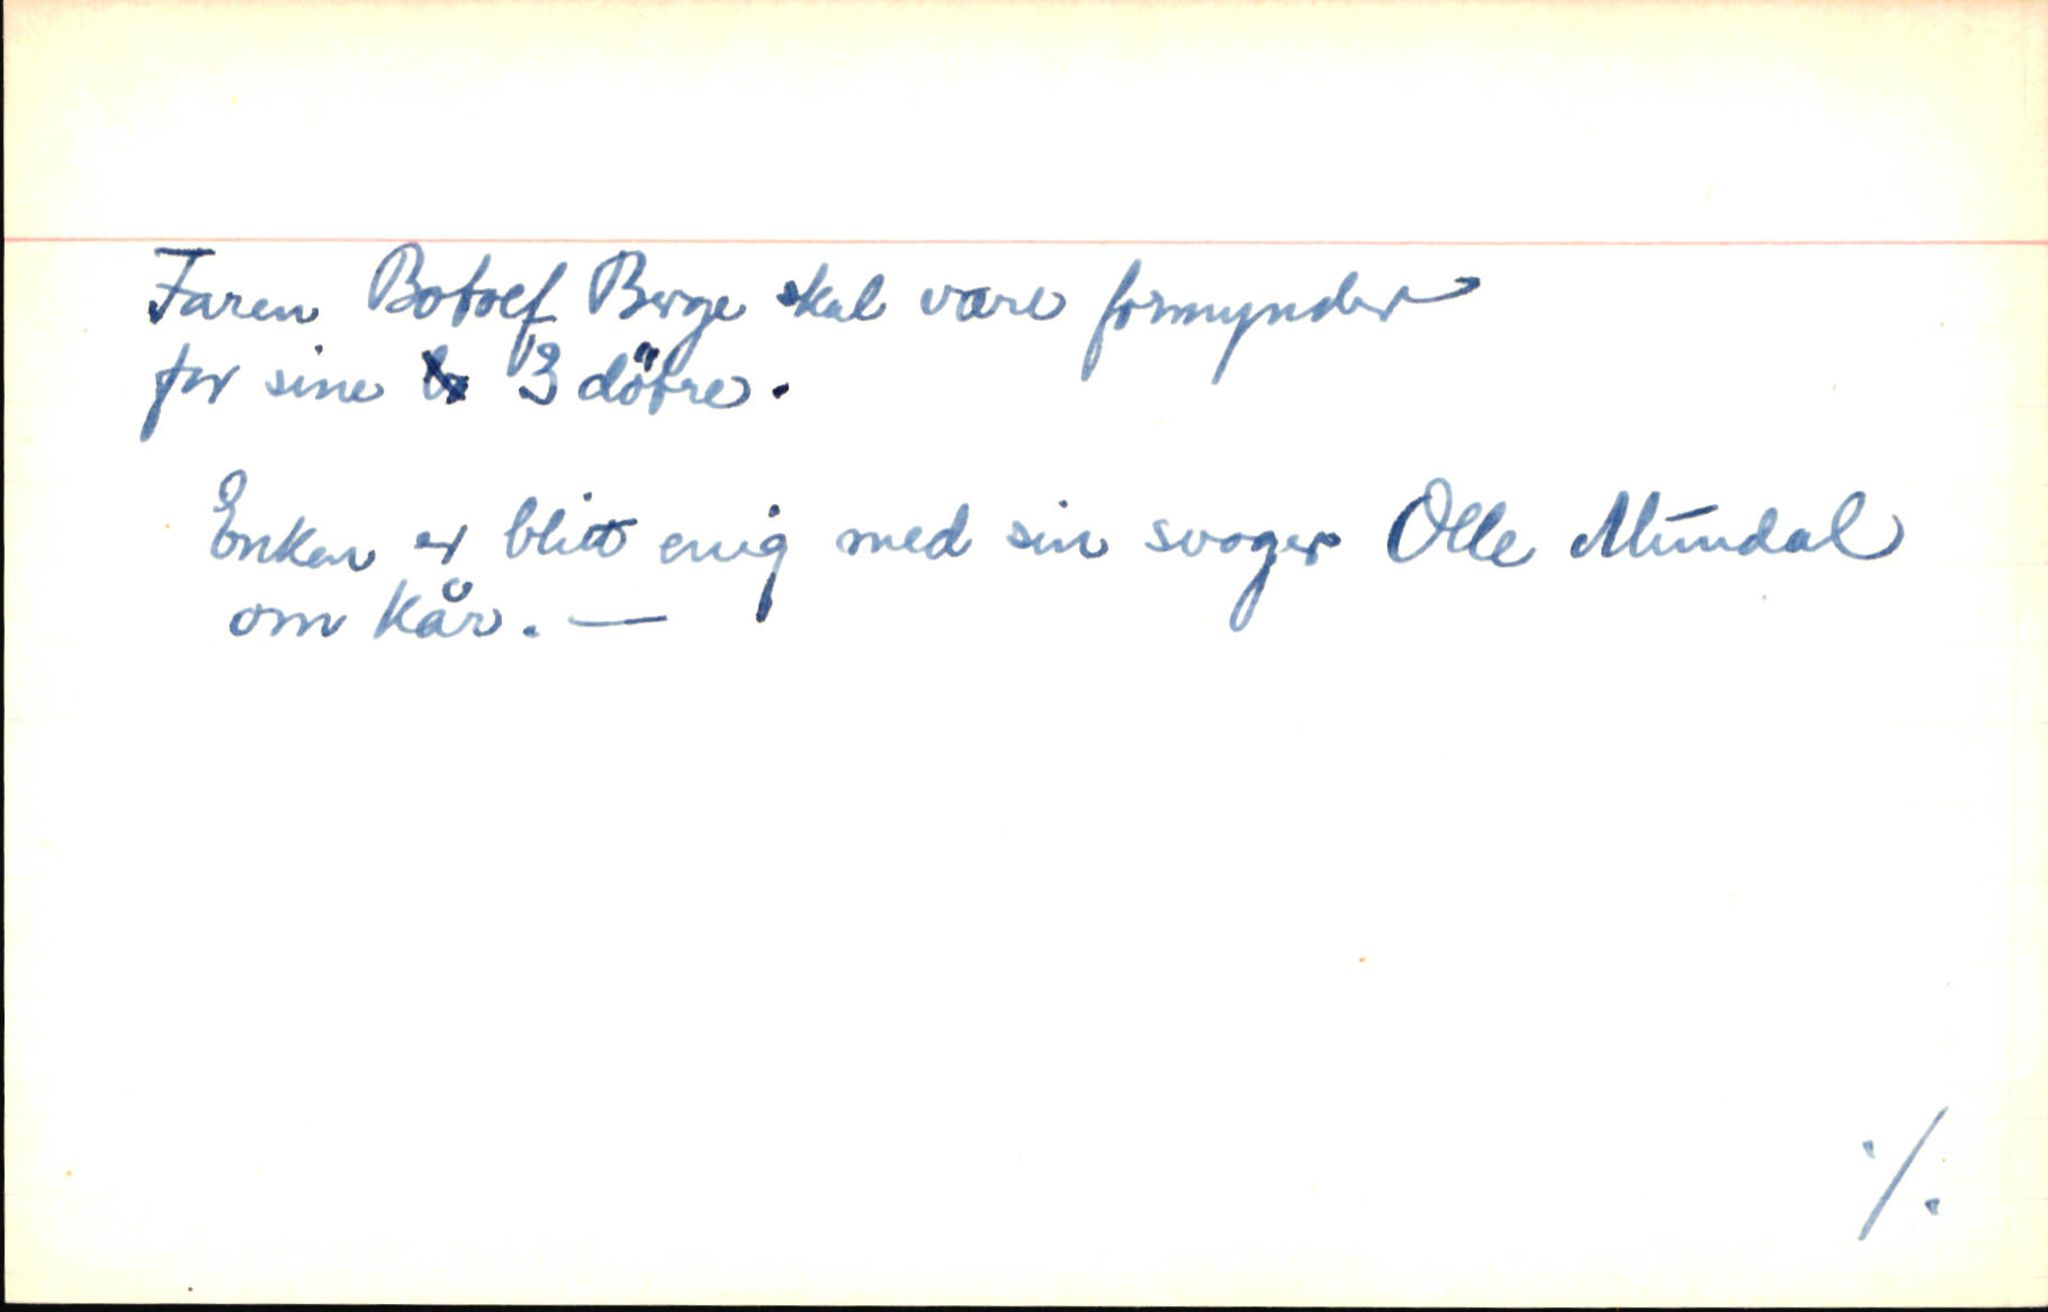 Faren Botolf Berge skal være formynder
for sine 3 døtre.
Enken er blitt enig med sin svoger Olle Mundal
om kår. —
·/.